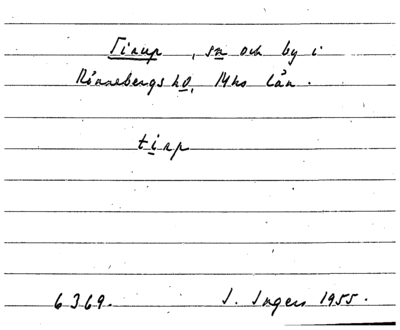 Tirup, sn och by i
Rönnebergs hd, Mhs län.
tirp
6369. I. Ingers 1955.